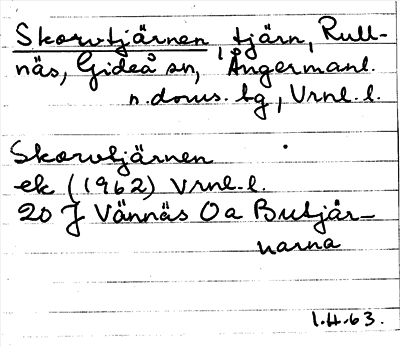 Skorvtjärnen, tjärn, Rull-
näs, Gideå sn, Ångermanl.
n. doms. bg, Vrnl. l.
Skorvtjärnen
ek (1962) Vrnl. l.
20 J Vännäs Oa Butjär-
narna
1.4.63.